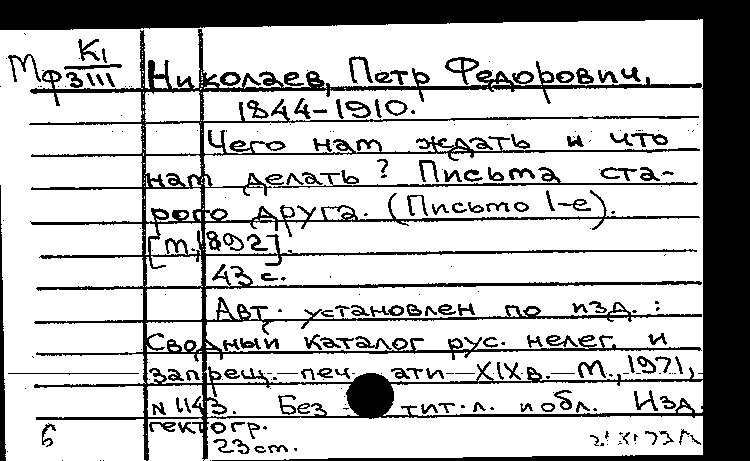 Мф К1/3111
Николаев, Петр Федорович,
1844-1910.
Чего нам ждать и что
нам делать? Письма ста-
рого друга. (Письмо 1-е).
[М., 1892].
43 с.
Авт. установлен по изд.:
Сводный каталог рус. нелег. и
запрещ. печати XIX в. М., 1971,
N 1143. Без тит. л. и обл. Изд.
гектогр.
23 ст.
б